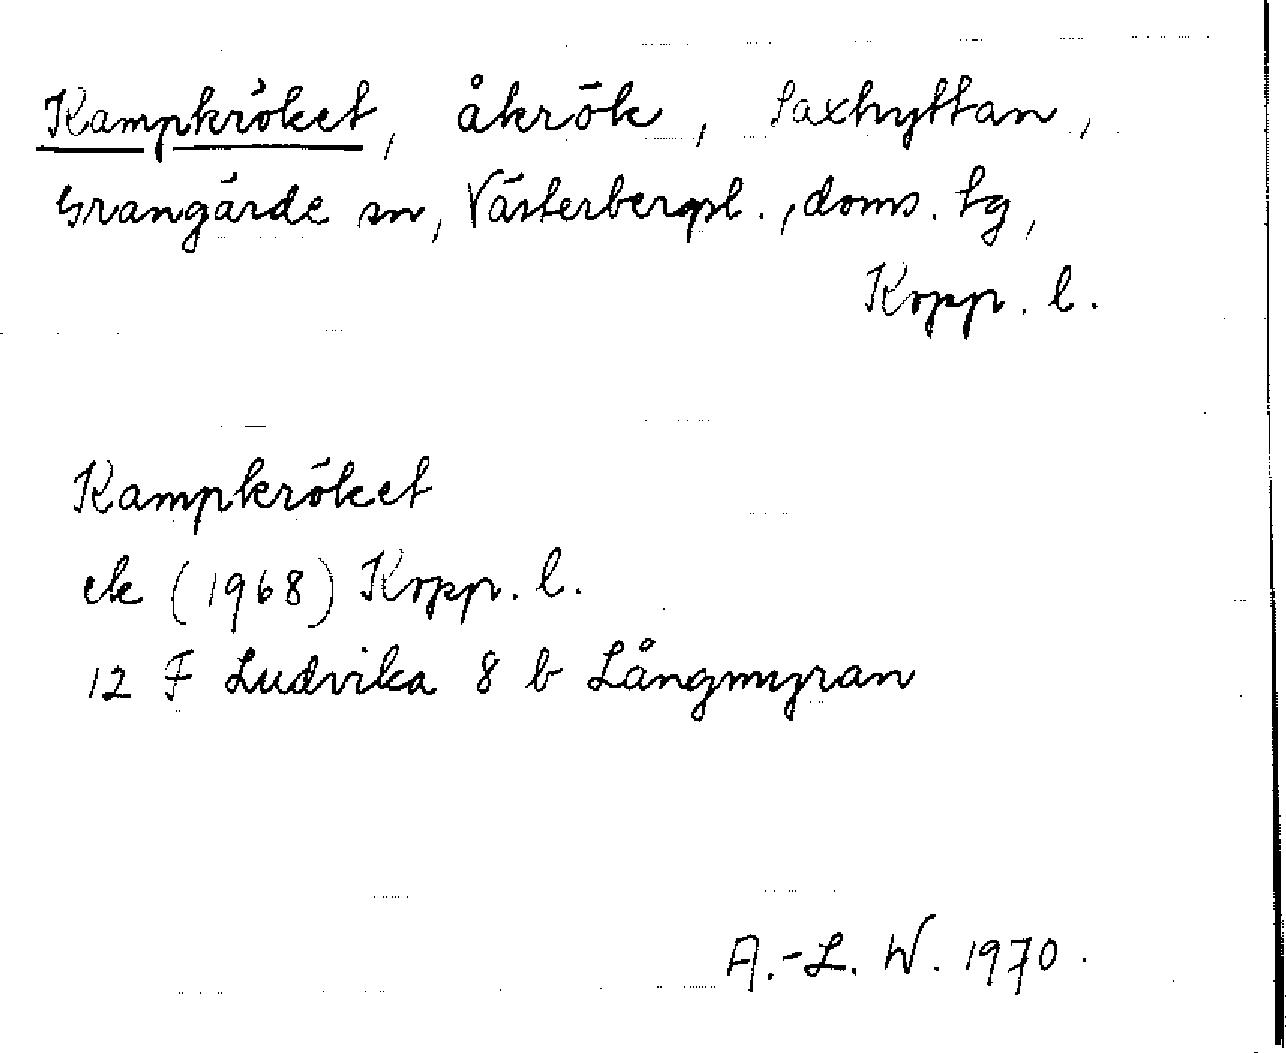 Kampkröket, åkrök, Saxhyttan,
Grangärde sn, Västerbergsl., doms. tg,
Kopp. l.
Kampkröket
ek (1968) Kopp. l.
12 F Ludvika 8 b Långmyran
A.-L. W. 1970.